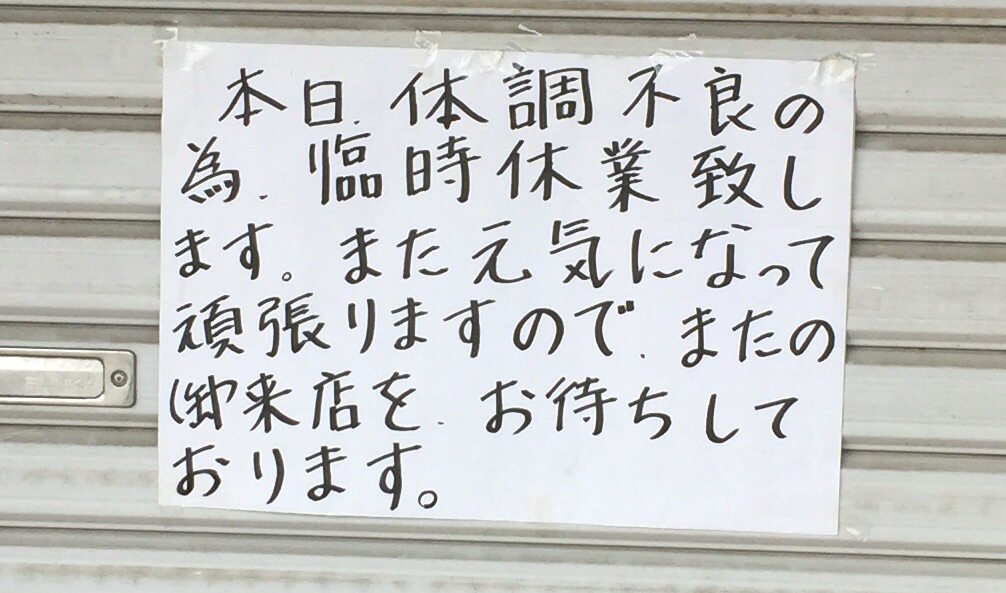 本日、体調不良の
為、臨時休業致し
ます。また元気になって
頑張りますので、またの
御来店を、お待ちして
おります。